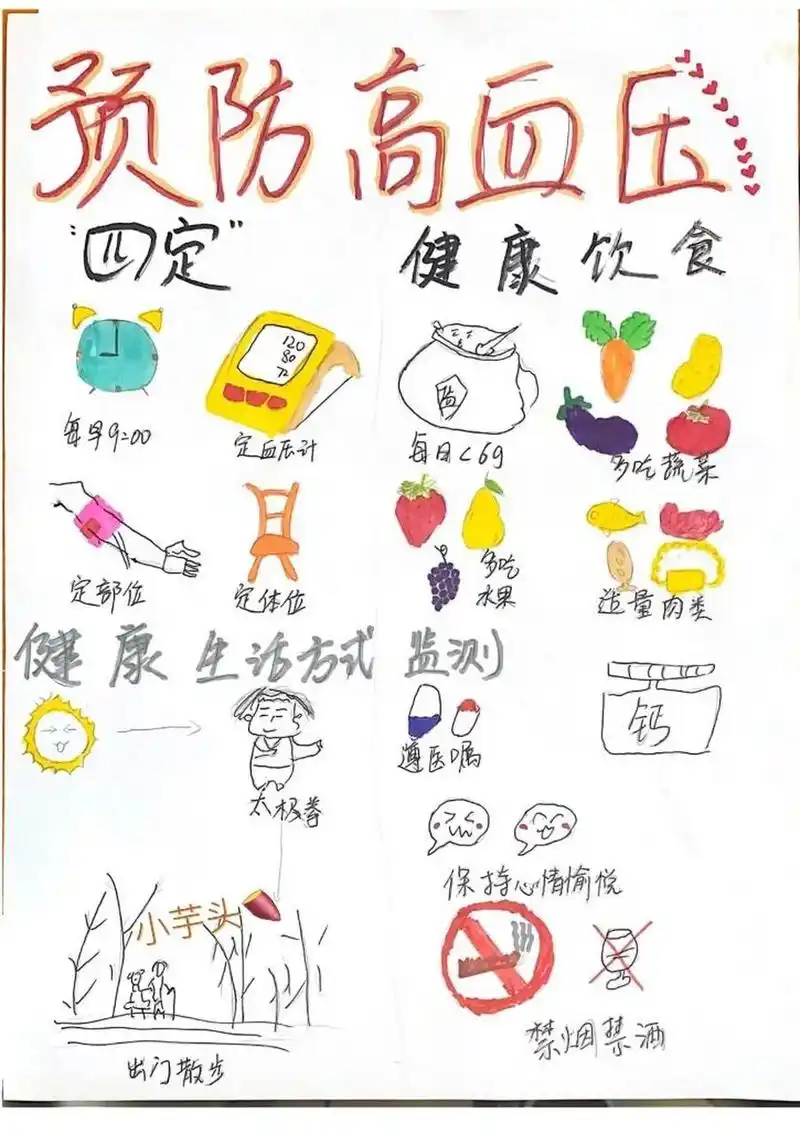 预防高血压
"四定"
健康饮食
120
80
72
盐
每早9:00
定血压计
每日<6g
多吃蔬菜
定部位
定体位
多吃
水果
适量肉类
健康生活方式
监测
钙
遵医嘱
太极拳
保持心情愉悦
小芋头
禁烟禁酒
出门散步